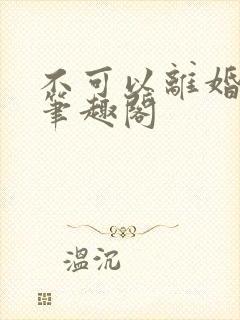 不可以離婚
筆趣閣
溫沉